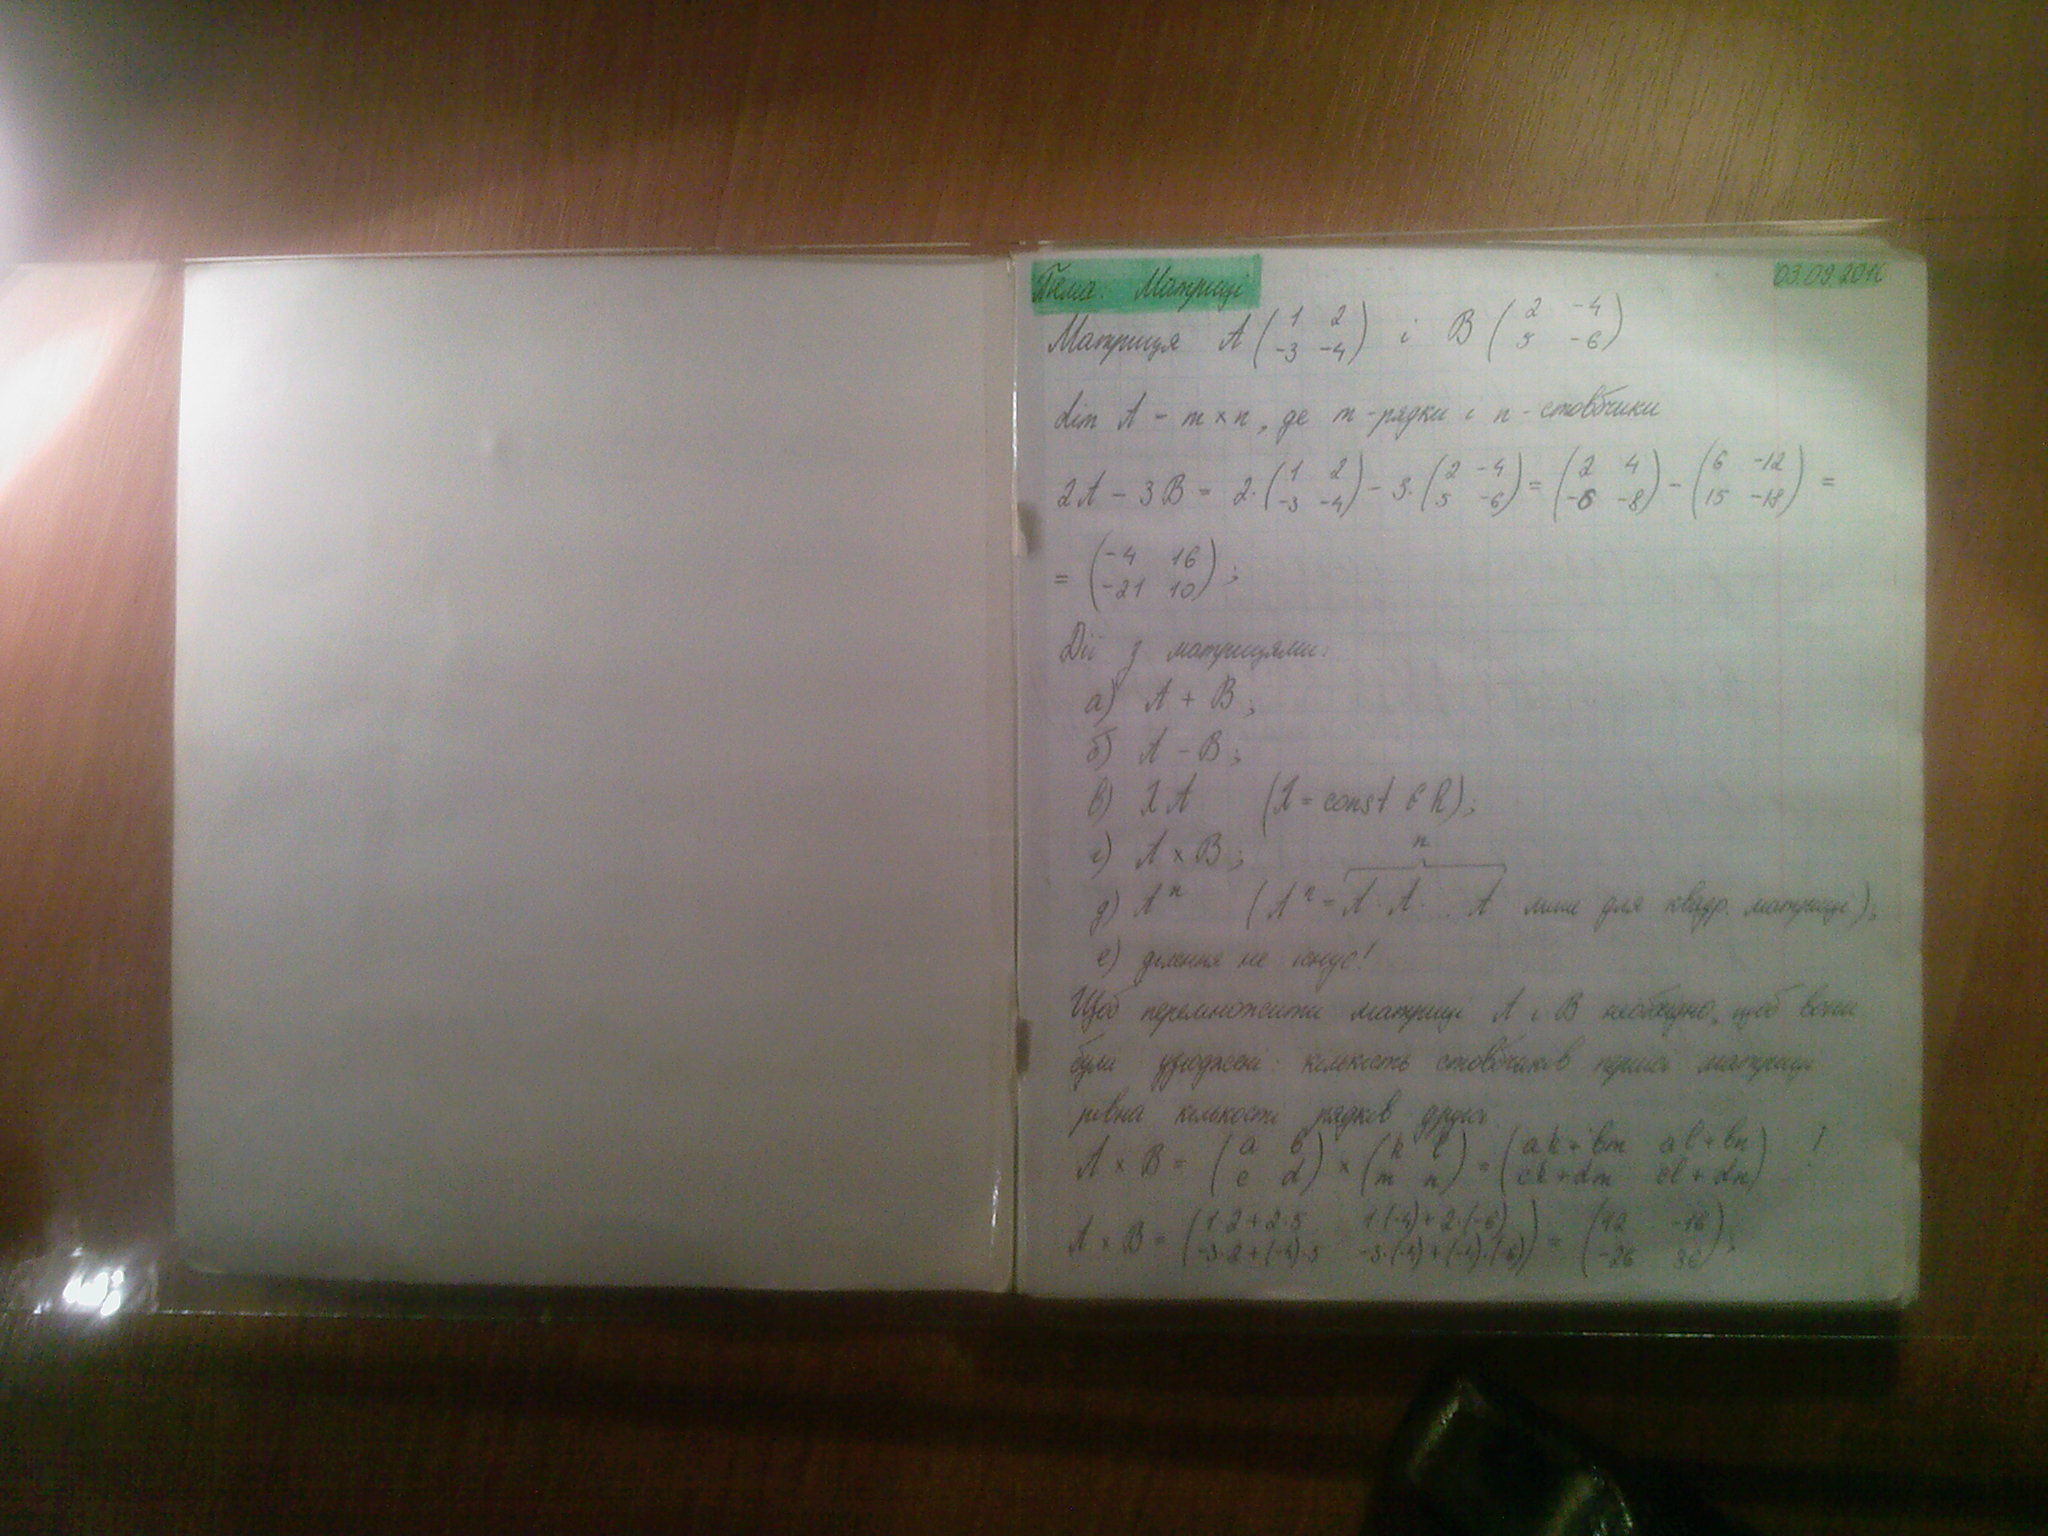 Тема: Матриці 03.09.2016
Матриця A (1 2 -3 -4) і B (2 -4 5 -6)
dim A - m × n, де m - рядки і n - стовбчики
2A - 3B = 2·(1 2 -3 -4) - 3·(2 -4 5 -6) = (2 4 -6 -8) - (6 -12 15 -18) =
= (-4 16 -21 10);
Дії з матрицями:
а) A + B;
б) A - B;
в) λA (λ = const ∈ R);
г) A × B;
n
д) Aⁿ (Aⁿ = A · A · ... A лише для квадр. матриці);
е) ділення не існує!
Щоб перемножити матриці A і B необхідно, щоб вони
були узгоджені: кількість стовбчиків першої матриці
рівна кількості рядків другої.
A × B = (a b c d) × (k l m n) = (ak + bm al + bn ck + dm cl + dn) !
A × B = (1·2+2·5 1·(-4)+2·(-6) -3·2+(-4)·5 -3·(-4)+(-4)·(-6)) = (12 -16 -26 36);